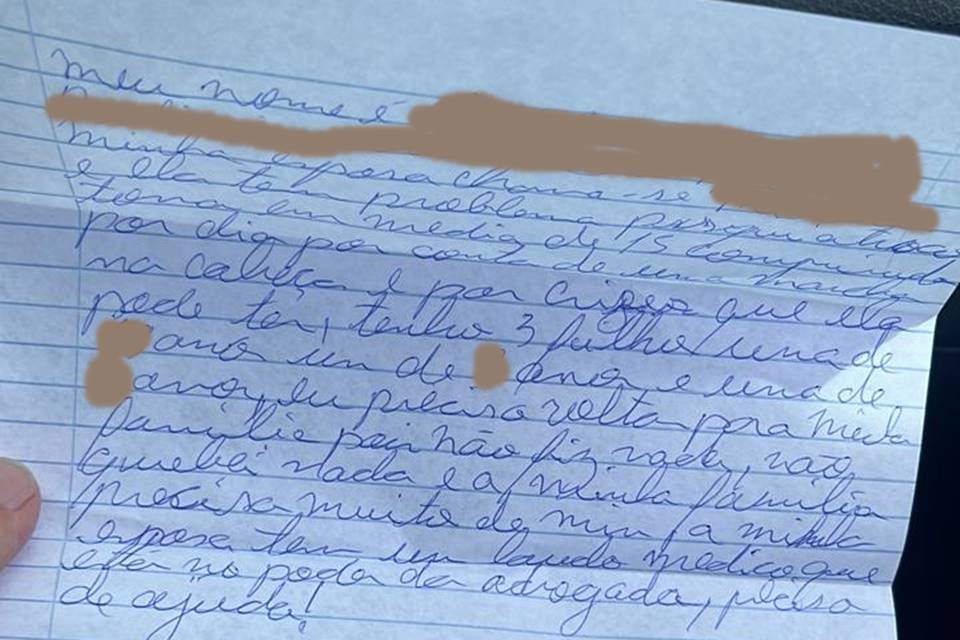 meu nome é
minha esposa chama-se
e ela tem problema psiquiatrico
toma em media de 15 comprimido
por dia por conta de uma mancha
na cabeça e por crises que ela
pode ter, tenho 3 filho uma de
anos um de anos e uma de
anos, eu preciso volta para minha
família pois não fiz nada, não
quebei nada e a minha família
precisa muito de mim, a minha
esposa tem um laudo medico que
está no poder da advogada, preciso
de ajuda!